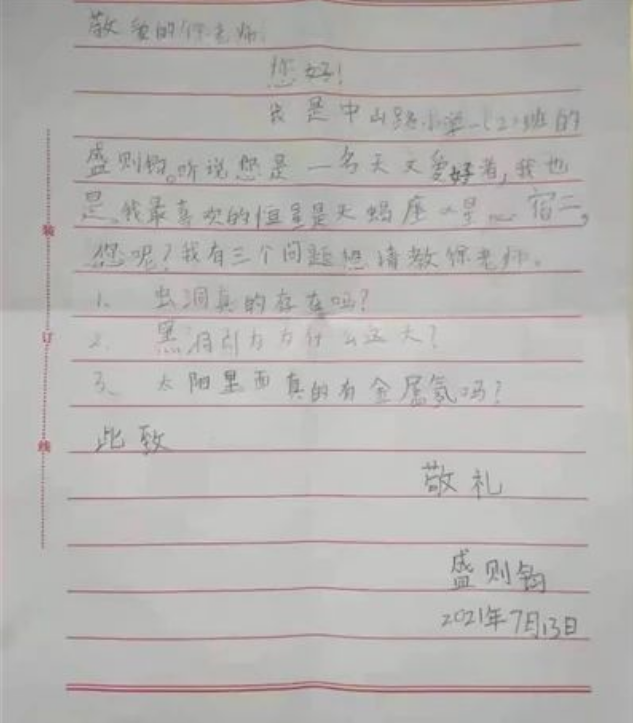 敬爱的徐老师:
您好!
我是中山路小学一(2)班的
盛则钧。听说您是一名天文爱好者,我也
是。我最喜欢的恒星是天蝎座α星心宿二,
您呢?我有三个问题想请教徐老师。
1. 虫洞真的存在吗?
2. 黑洞引力为什么这大?
3、太阳里面真的有金属氢吗?
此致
敬礼
盛则钧
2021年7月13日
装
订
线